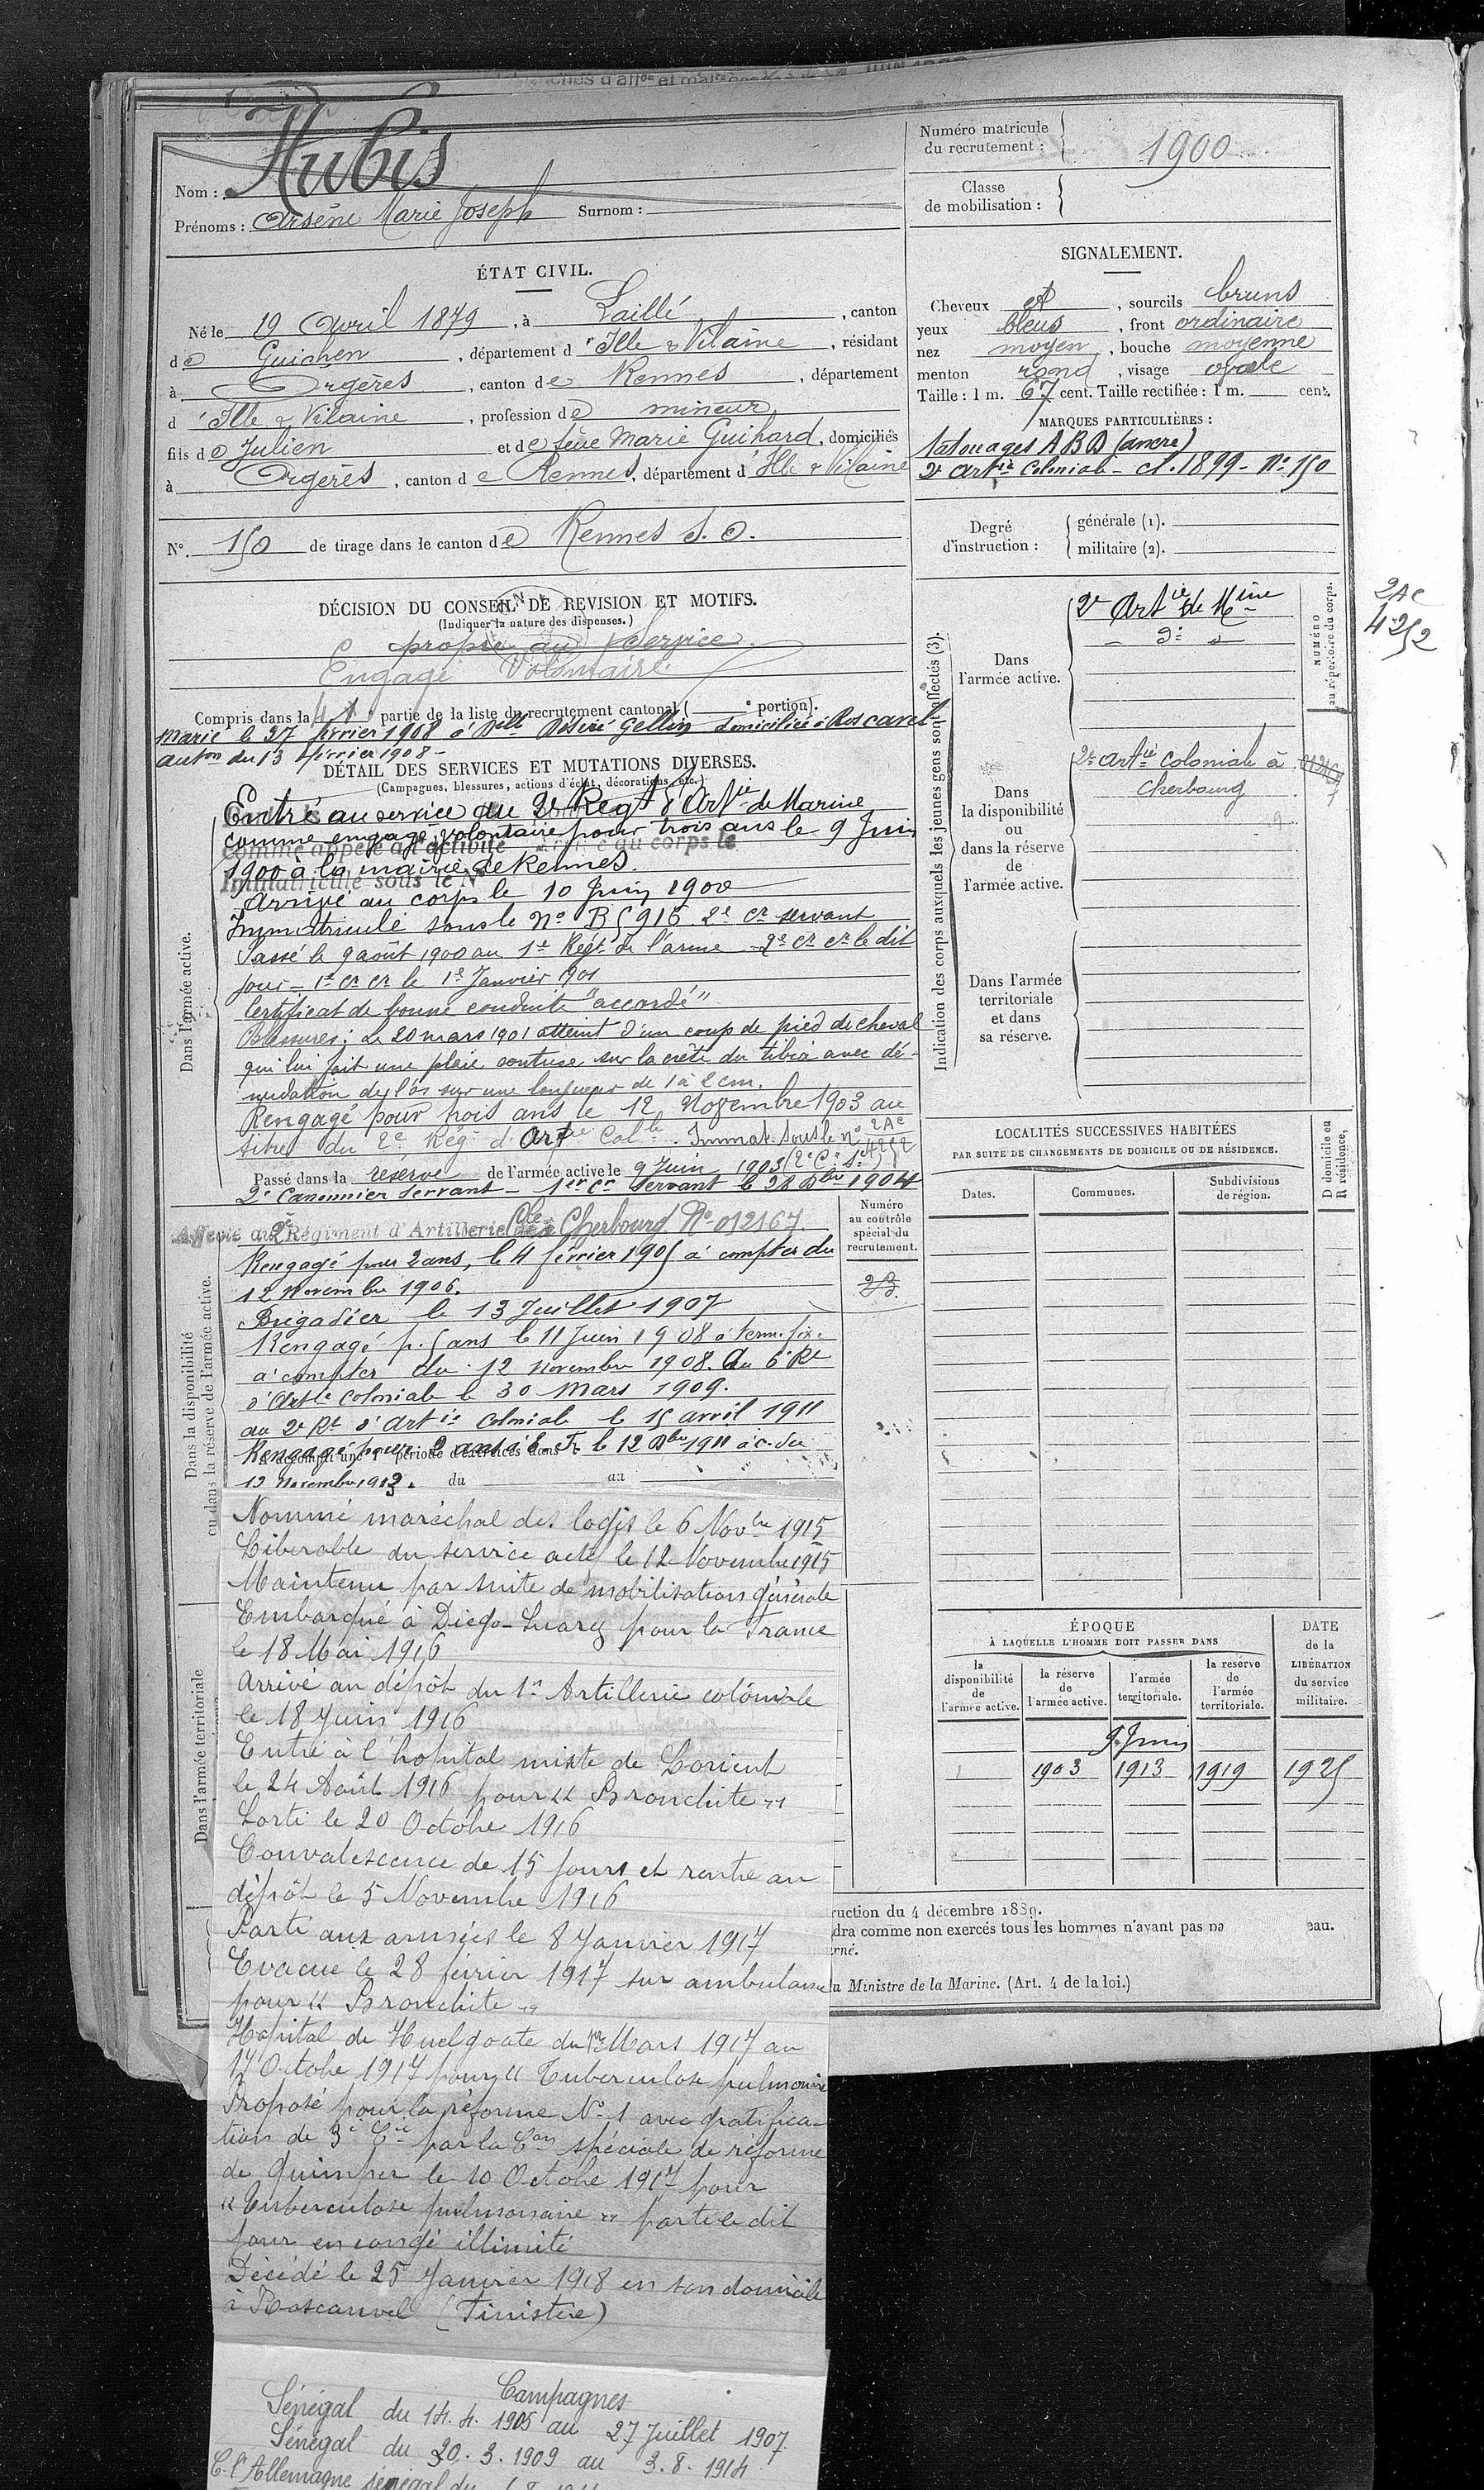 Nom : Aubis
Prénoms : Arsène Marie Joseph Surnom :
Numéro matricule
du recrutement : 1900
Classe
de mobilisation :
ÉTAT CIVIL.
Né le 19 Avril 1879, à Laillé, canton
de Guichen, département d'Ille & Vilaine, résidant
à Orgères, canton de Rennes, département
d'Ille & Vilaine, profession de mineur
fils de Julien et de feue Marie Guihard, domiciliés
à Orgères, canton de Rennes, département d'Ille & Vilaine
N° 150 de tirage dans le canton de Rennes S. O.
SIGNALEMENT.
Cheveux et, sourcils bruns
yeux bleus, front ordinaire
nez moyen, bouche moyenne
menton rond, visage ovale
Taille : 1 m. 67 cent. Taille rectifiée : 1 m. cent.
MARQUES PARTICULIÈRES :
tatouages A B D (ancre)
2e Artie Coloniale - cl. 1899 - N° 150
Degré
d'instruction :
générale (1).
militaire (2).
DÉCISION DU CONSEIL DE REVISION ET MOTIFS.
(Indiquer la nature des dispenses.)
propre au Service
Engagé Volontaire
Compris dans la partie de la liste du recrutement cantonal ( portion).
Marié le 27 février 1908 à Delle Désiré Gellin domiciliée à Roscanvel
auton du 13 février 1908 -
DÉTAIL DES SERVICES ET MUTATIONS DIVERSES.
(Campagnes, blessures, actions d'éclat, décorations, etc.)
Dans l'armée active.
Entré au service au 2e Regt d'Artie de Marine
comme engagé volontaire pour trois ans le 9 Juin
comme appelé à l'activité au corps le
1900 à la mairie de Rennes.
Immatriculé sous le N°
Arrivé au corps le 10 Juin 1900
Immatriculé sous le N° B 5916 2e cr servant
Passé le 9 août 1900 au 1e Régt de l'arme 2e cr cr le dit
jour - 1e cr cr le 1e Janvier 1901
Certificat de bonne conduite "accordé"
Blessures : Le 20 mars 1901 atteint d'un coup de pied de cheval
qui lui fait une plaie contuse sur la crête du tibia avec dé-
nudation de l'os sur une longueur de 1 à 2 cm.
Rengagé pour trois ans le 12 Novembre 1903 au
titre du 2e Rég. d'Artie Colle. Immat. sous le n° 2AC 4252
Passé dans la réserve de l'armée active le 9 Juin 1903
2e Canonnier Servant - 1er cr servant le 28 Dbre 1904
Affecté au 2e Régiment d'Artillerie Cle Cherbourg N° 012167.
Dans la disponibilité
ou dans la réserve de l'armée active.
Rengagé pour 2 ans, le 4 février 1905 à compter du
12 Novembre 1906.
Brigadier le 13 Juillet 1907
Rengagé p. 5 ans le 11 Juin 1908 à term. fix.
à compter du 12 novembre 1908. Au 6e Rt
d'Artie coloniale le 30 mars 1909.
au 2e Rt d'Artie Coloniale le 15 avril 1911
Rengagé pour 2 ans à le 12 Dbre 1911 à c. du
a accompli une 1re période d'exercices dans
12 Novembre 1913. du au
Numéro
au contrôle
spécial du
recrutement.
23.
Dans l'armée territoriale
Nommé maréchal des logis le 6 Novbre 1915
Libérable du service actif le 12 Novembre 1915
Maintenu par suite de mobilisation générale
Embarqué à Diégo-Suarez pour la France
le 18 Mai 1916
Arrivé au dépôt du 1er Artillerie coloniale
le 18 Juin 1916
Entré à l'hôpital mixte de Lorient
le 24 Août 1916 pour « Bronchite »
Sorti le 20 Octobre 1916
Convalescence de 15 jours et rentre au
dépôt le 5 Novembre 1916
Parti aux armées le 8 Janvier 1917
Evacué le 28 février 1917 sur ambulance
pour « Bronchite »
Hôpital de Huelgoate du 1er Mars 1917 au
17 Octobre 1917 pour « Tuberculose pulmonaire
Proposé pour la réforme N° 1 avec gratifica-
tion de 3e Cie par la Con spéciale de réforme
de Quimper le 10 Octobre 1917 pour
« Tuberculose pulmonaire » parti le dit
jour en congé illimité
Décédé le 25 Janvier 1918 en son domicile
à Roscanvel (Finistère)
Campagnes
Sénégal du 14.4.1905 au 27 Juillet 1907
Sénégal du 20.3.1909 au 3.8.1914
C. l'Allemagne Sénégal du
Indication des corps auxquels les jeunes gens sont affectés (3).
Dans
l'armée active.
2e Artie de Mine
NUMÉRO
au répertoire du corps.
2AC
4252
Dans
la disponibilité
ou
dans la réserve
de
l'armée active.
2e Artie Coloniale à
Cherbourg
Dans l'armée
territoriale
et dans
sa réserve.
LOCALITÉS SUCCESSIVES HABITÉES
PAR SUITE DE CHANGEMENTS DE DOMICILE OU DE RÉSIDENCE.
Dates. Communes. Subdivisions
de région.
D domicile ou
R résidence,
ÉPOQUE
À LAQUELLE L'HOMME DOIT PASSER DANS
la
disponibilité
de
l'armée active.
la réserve
de
l'armée active.
l'armée
territoriale.
la réserve
de
l'armée
territoriale.
DATE
de la
LIBÉRATION
du service
militaire.
9 Juin
1903 1913 1919 1925
ruction du 4 décembre 1889.
dra comme non exercés tous les hommes n'ayant pas pa eau.
erné.
u Ministre de la Marine. (Art. 4 de la loi.)